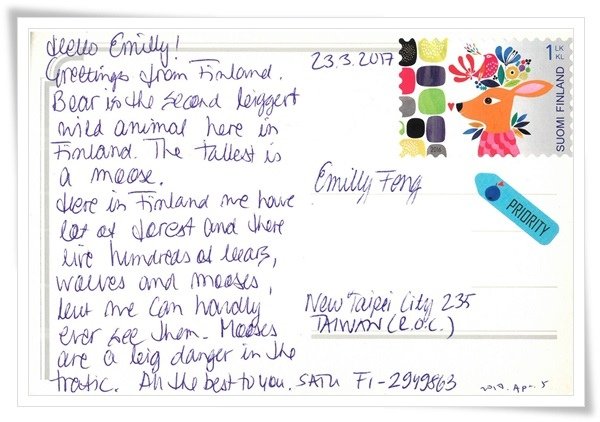 Hello Emilly!
Greetings from Finland.
Bear is the second biggest
wild animal here in
Finland. The tallest is
a moose.
Here in Finland we have
lot of forest and there
live hundreds of bears,
wolves and mooses,
but we can hardly
ever see them. Mooses
are a big danger in the
trafic. All the best to you. SATU FI-2949863
23.3.2017
1 LK
KL
SUOMI FINLAND
2016
PRIORITY
Emilly Feng
New Taipei City 235
TAIWAN (R.O.C.)
2017. Apr. 5